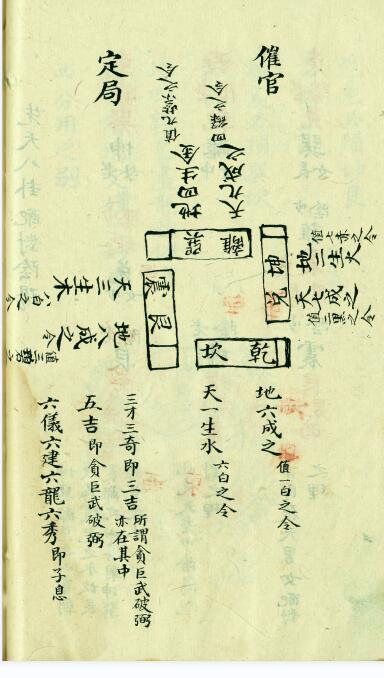 催官
天九成之
四綠之令
地四生金
值九紫之令
定局
離
巽
坤
兌
地二生火
值七赤之令
天七成之
值二黑之令
乾
坎
艮
震
天三生木
八白之令
地八成之
值三碧之令
地六成之
值一白之令
天一生水
六白之令
三才三奇即三吉
所謂貪巨武破弼
亦在其中
五吉即貪巨武破弼
六儀六建六龍六秀即子息